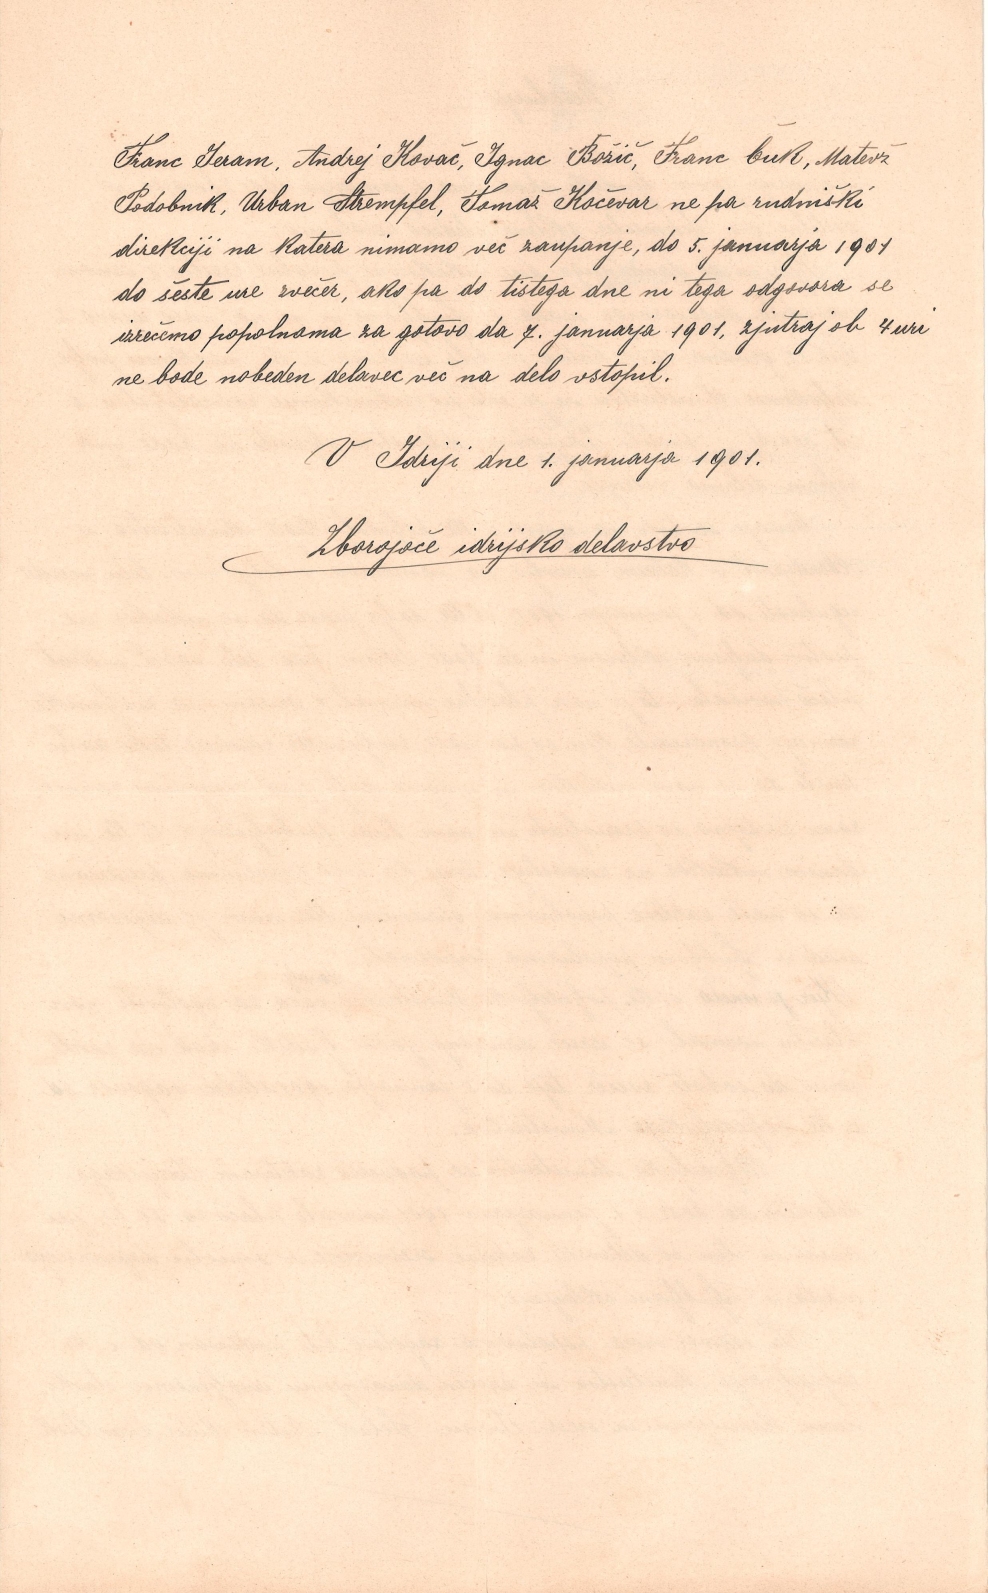 Franc Jeram, Andrej Kovač, Ignac Božič, Franc Čuk, Matevž
Podobnik, Urban Strempfel, Tomaž Kočevar ne pa rudniški
direkciji na katera nimamo več zaupanje, do 5. januarja 1901
do šeste ure zvečer, ako pa do tistega dne ni tega odgovora se
izrečemo popolnama za gotovo da 7. januarja 1901, zjutraj ob 4 uri
ne bode nobeden delavec več na delo vstopil.
V Idriji dne 1. januarja 1901.
Zborojoče idrijsko delavstvo